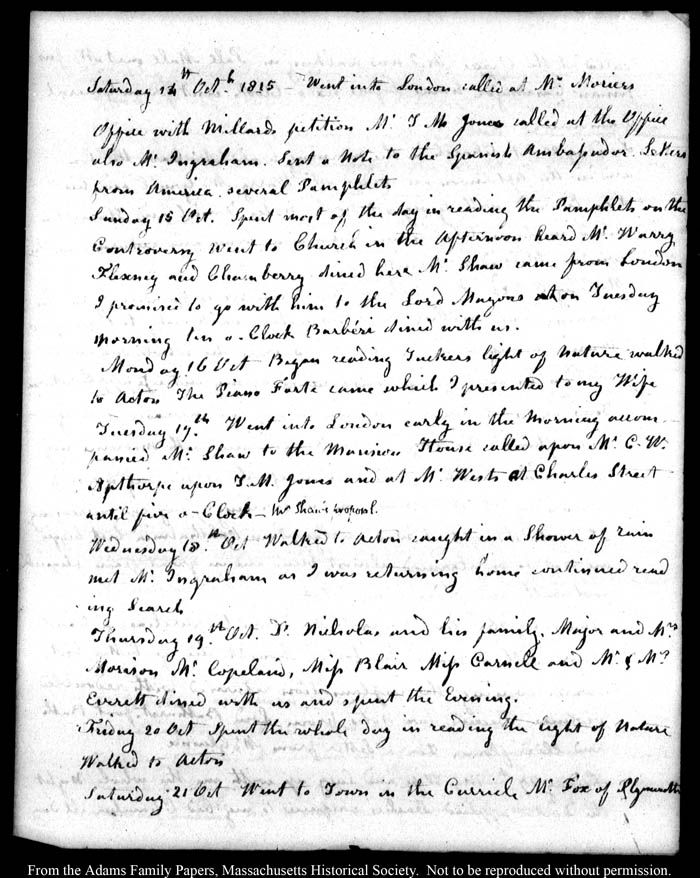 Saturday 14th Octb 1815 – Went into London called at Mr Moriers
Office with Millards petition Mr T M Jones called at the Office
also Mr Ingraham. Sent a Note to the Spanish Ambassador. Letters
from America. several Pamphlets
Sunday 15 Oct. Spent most of the day in reading the Pamphlets on the
Controversy went to Church in the afternoon heard Mr Warry,
Flaxney and Chamberry dined here Mr Shaw came from London
I promised to go with him to the Lord Mayors on Tuesday
morning ten o-Clock Barbéri dined with us.
Monday 16 Oct Began reading Tuckers light of Nature walked
to Acton The Piano Forte came which I presented to my Wife
Tuesday 17th Went into London early in the morning accom-
panied Mr Shaw to the Mansion House called upon Mr C. W.
Apthorpe upon T. M. Jones and at Mr Wests at Charles Street
until five o-Clock – Mr Shaw's proposal.
Wednesday 18th Oct Walked to Acton caught in a Shower of rain
met Mr Ingraham as I was returning home continued read
ing Search
Thursday 19th Oct. Dr Nicholas and his family, Major and Mrs
Morison Mr Copeland, Miss Blair Miss Carnell and Mr & Mrs
Everett dined with us and spent the Evening.
Friday 20 Oct Spent the whole day in reading the Light of Nature
Walked to Acton
Saturday 21 Oct Went to Town in the Curricle Mr Fox of Plymouth
From the Adams Family Papers, Massachusetts Historical Society. Not to be reproduced without permission.